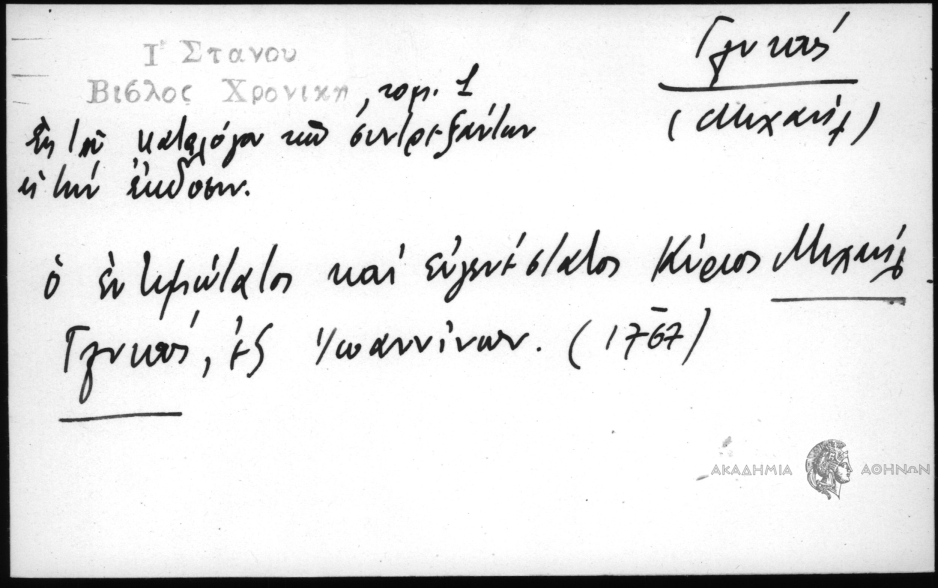 Γλυκύς
(Μιχαήλ)
Ι Στανου
Βιβλος Χρονικη, τομ. 1
Ἐκ τοῦ καταλόγου τῶν συντρεξάντων
εἰς τὴν ἔκδοσιν.
ὁ ἐντιμώτατος καὶ εὐγενέστατος Κύριος Μιχαήλ
Γλυκύς, ἐξ Ἰωαννίνων. (1767)
ΑΚΑΔΗΜΙΑ ΑΘΗΝΩΝ